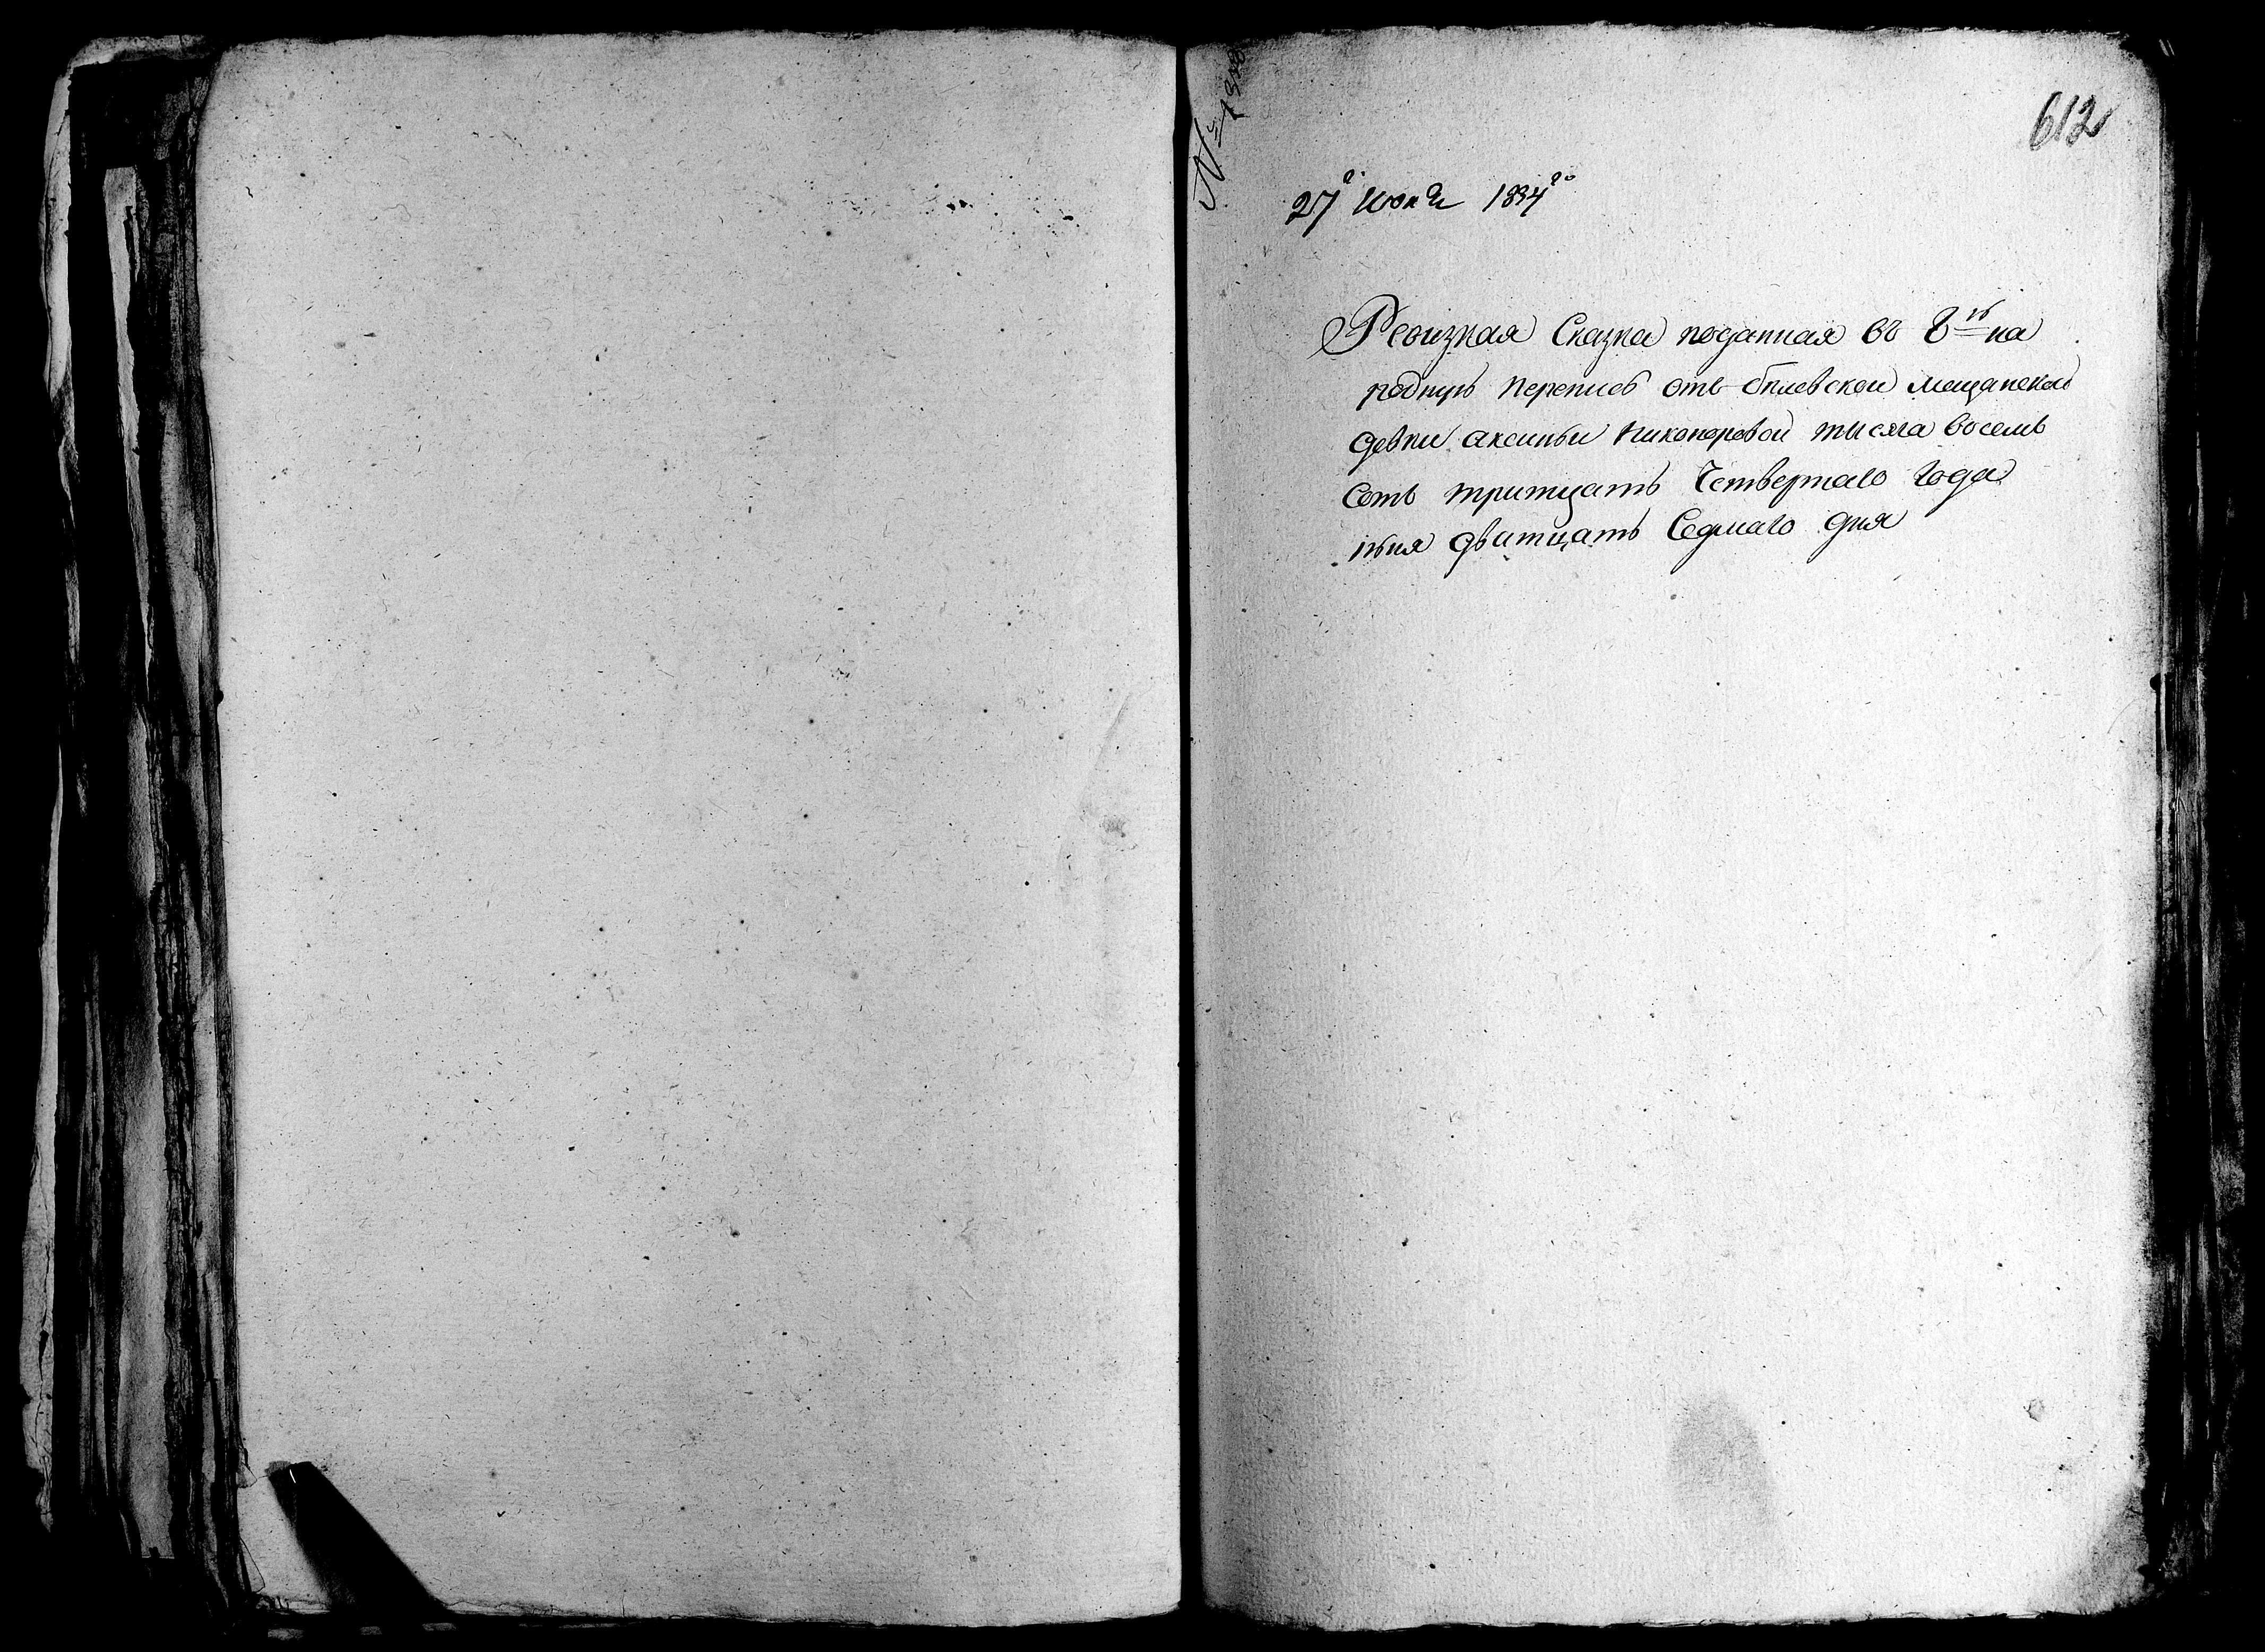 612
27го Июня 1834го
Ревизкая Сказка поданная въ 8ю на
родную перепись отъ бѣлевской мещанской
девки аксиньи никоноровой тысяча восемь
Сотъ тритцать Четвертаго года
июня дватцать Седмаго дня